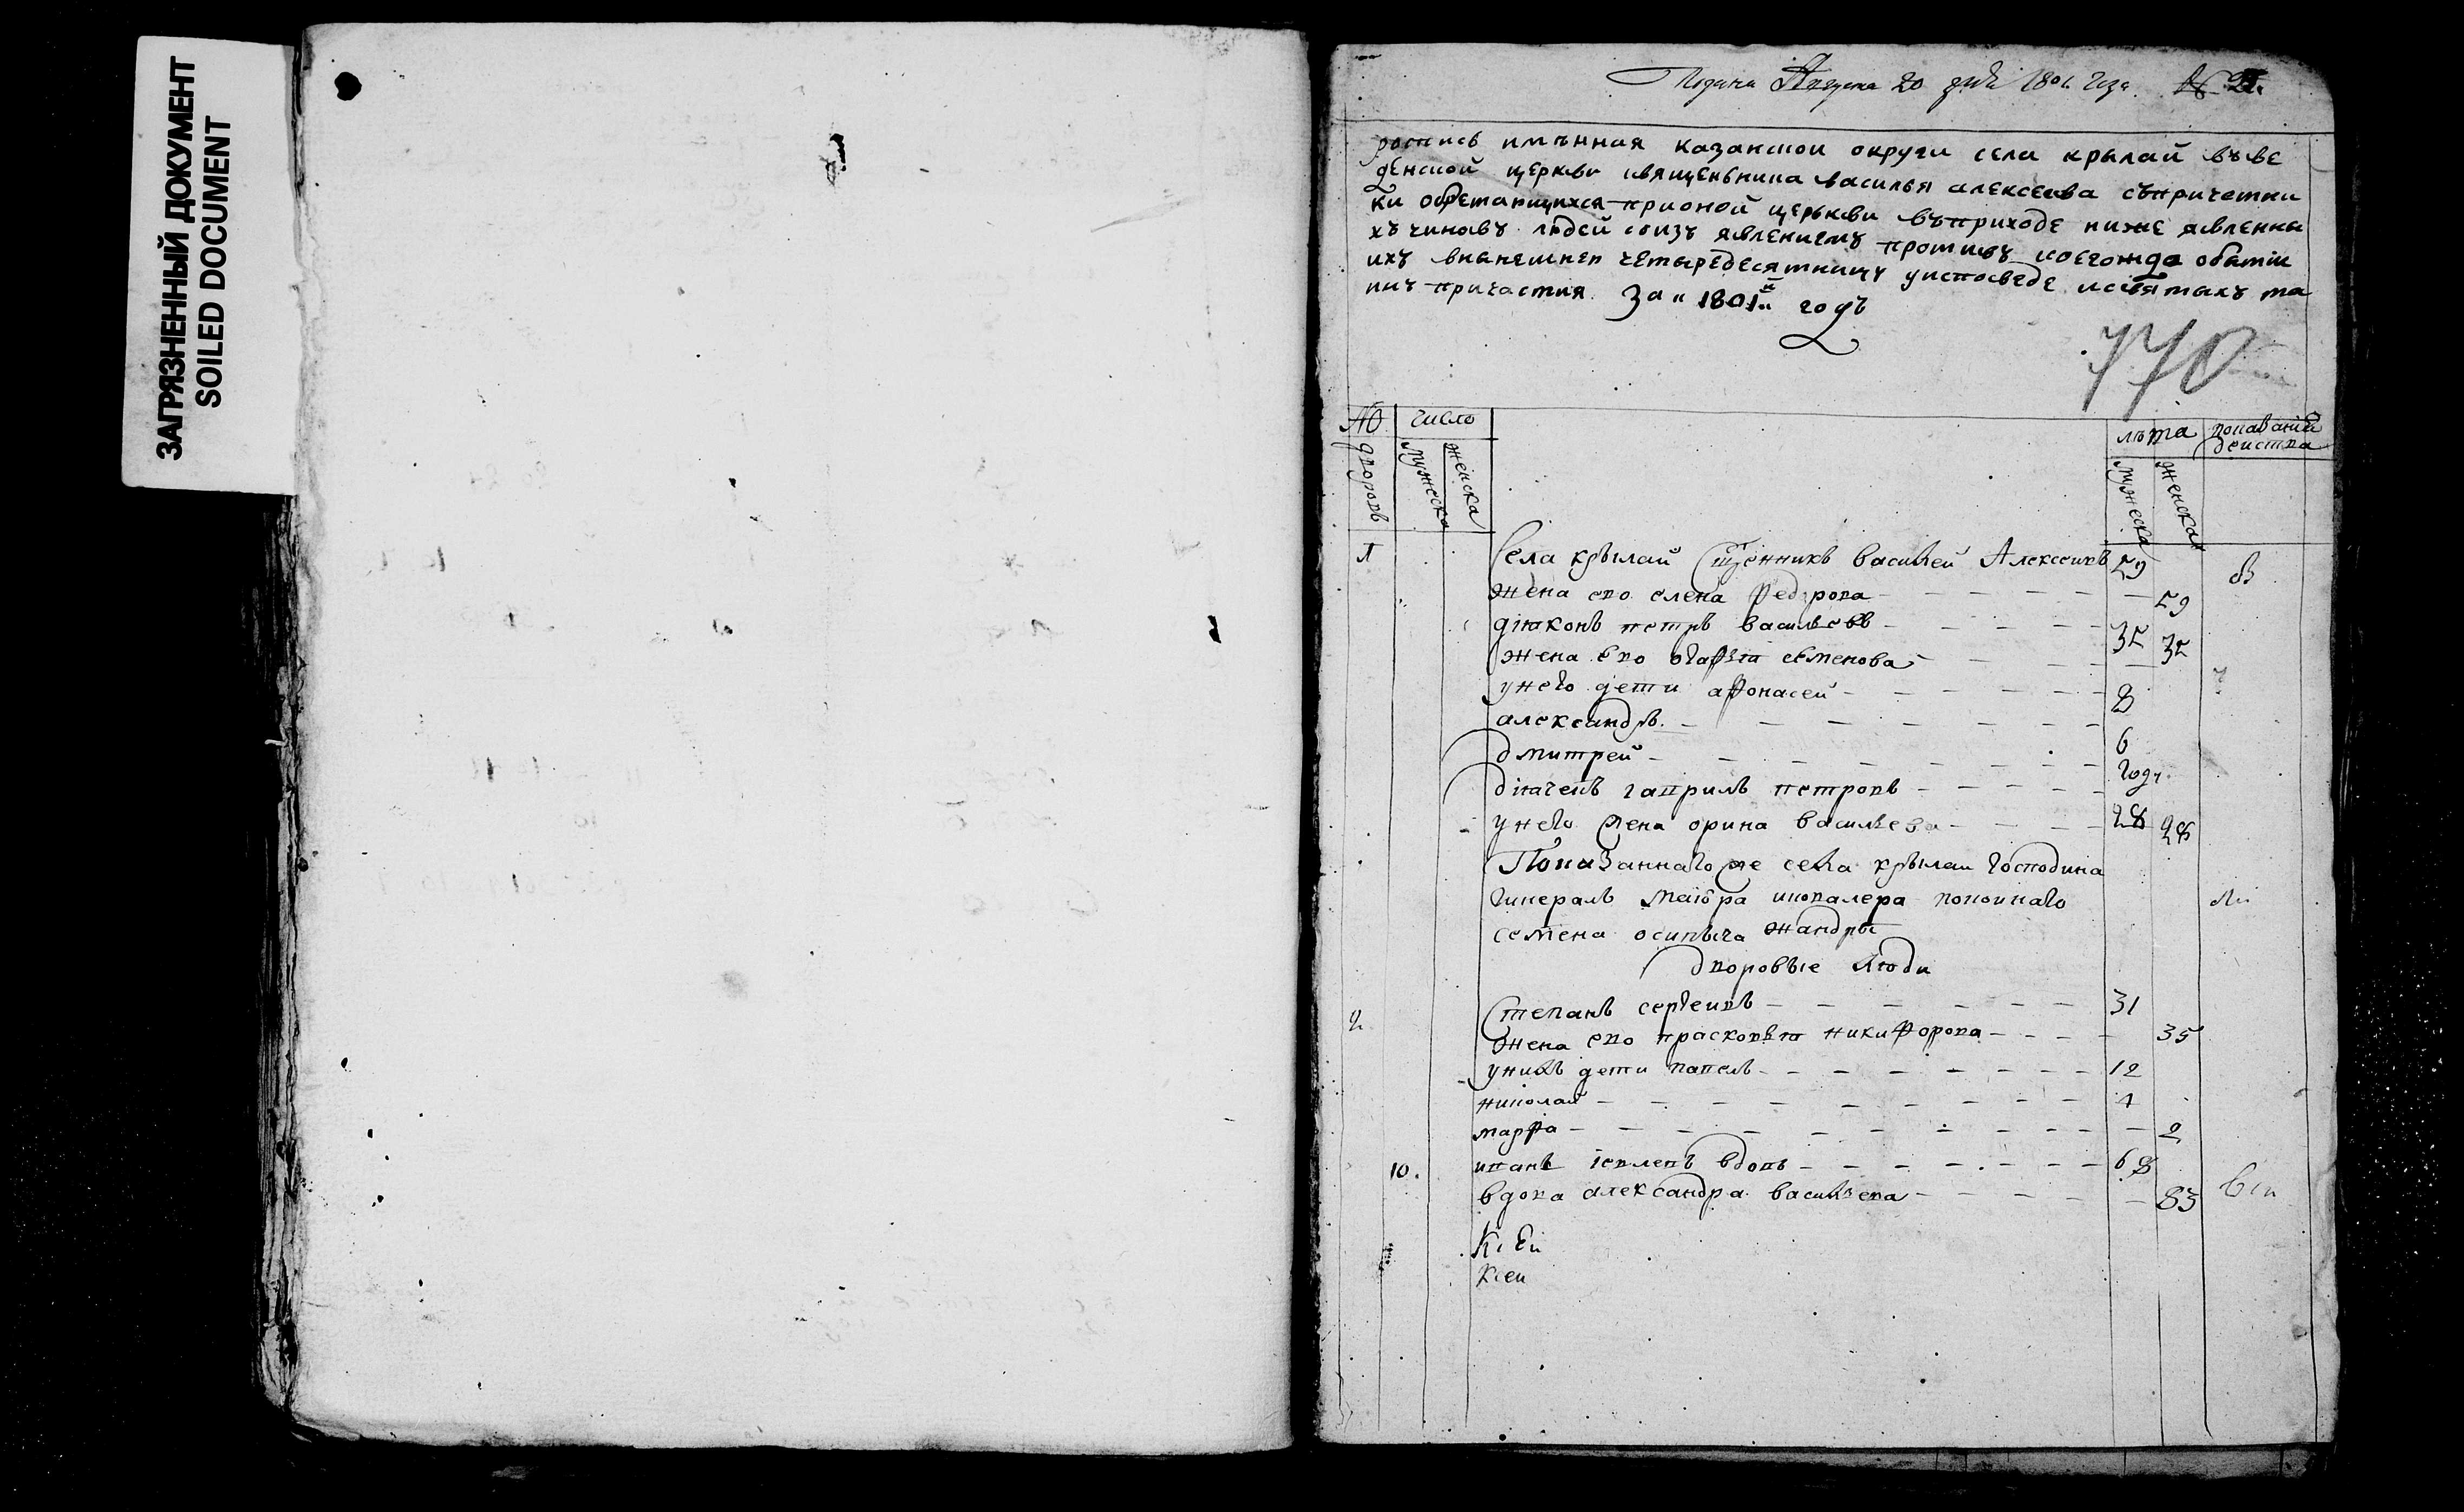 ЗАГРЯЗНЕННЫЙ ДОКУМЕНТ
SOILED DOCUMENT
Подана Августа 20 дня 1801 года. №
роспись имѣнная казанской округи села крылай въве
денской церкви священьника василья алексеева съпричетни
ки обретающихся прионой церькви въприходе ниже явленны
хъ чиновъ людей соизъ явлениемъ противъ коегожда обытіи
ихъ внынешнеи четыредесятницу уисповеде исвятыхъ та
инъ причастия За 1801й годъ
770
№ число лѣта
дворовъ мужеска женска мужеска женска действа
1 Села крылай Сщенникъ василей Алексеивъ 59
жена ево елена Федорова 59
діаконъ петръ васильевъ 35
жена ево агафья семенова 35
унего дети афонасей 8
александръ 6
дмитрей годъ
діячекъ гаврилъ петровъ 28
унего жена орина васильева 28
Показаннаго же села крылаи Господина
Гинералъ маіора икавалера покоинаго
семена осипыча жандры
дворовые люди
2 Степанъ сергеивъ 31
жена ево прасковья никифорова 35
унихъ дети павелъ 12
николай 1
марфа 2
10. иванъ іевлевъ вдовъ 68
вдова александра васильева 83